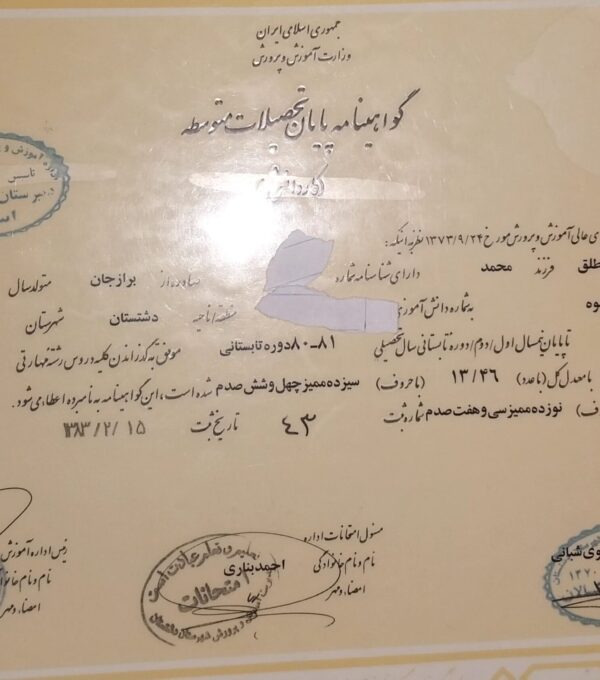 جمهوری اسلامی ایران
وزارت آموزش و پرورش
گواهینامه پایان تحصیلات متوسطه
(کاردانش)
ی عالی آموزش و پرورش مورخ ۱۳۷۳/۹/۲۴ نظر به اینکه:
طلق فرزند محمد دارای شناسنامه شماره صادره از برازجان متولد سال
وه به شماره دانش آموزی منطقه/ناحیه دشتستان شهرستان
تا پایان نیمسال اول/دوم/دوره تابستانی سال تحصیلی ۸۱-۸۰ دوره تابستانی موفق به گذراندن کلیه دروس رشته مهارتی
با معدل کل (با عدد) ۱۳/۴۶ (با حروف) سیزده ممیز چهل و شش صدم شده است، این گواهینامه به نامبرده اعطاء می شود.
ف) نوزده ممیز سی و هفت صدم شماره ثبت ۴۳ تاریخ ثبت ۱۳۸۳/۲/۱۵
مسئول امتحانات اداره
نام و نام خانوادگی احمد بناری
امضاء و مهر
رئیس اداره آموزش
نام و نام خانوا
امضاء و مهر
وی شبانی
تعلیم و تعلم عبادت است
امتحانات
۱۳۷۰
تاسیس
دبیرستان